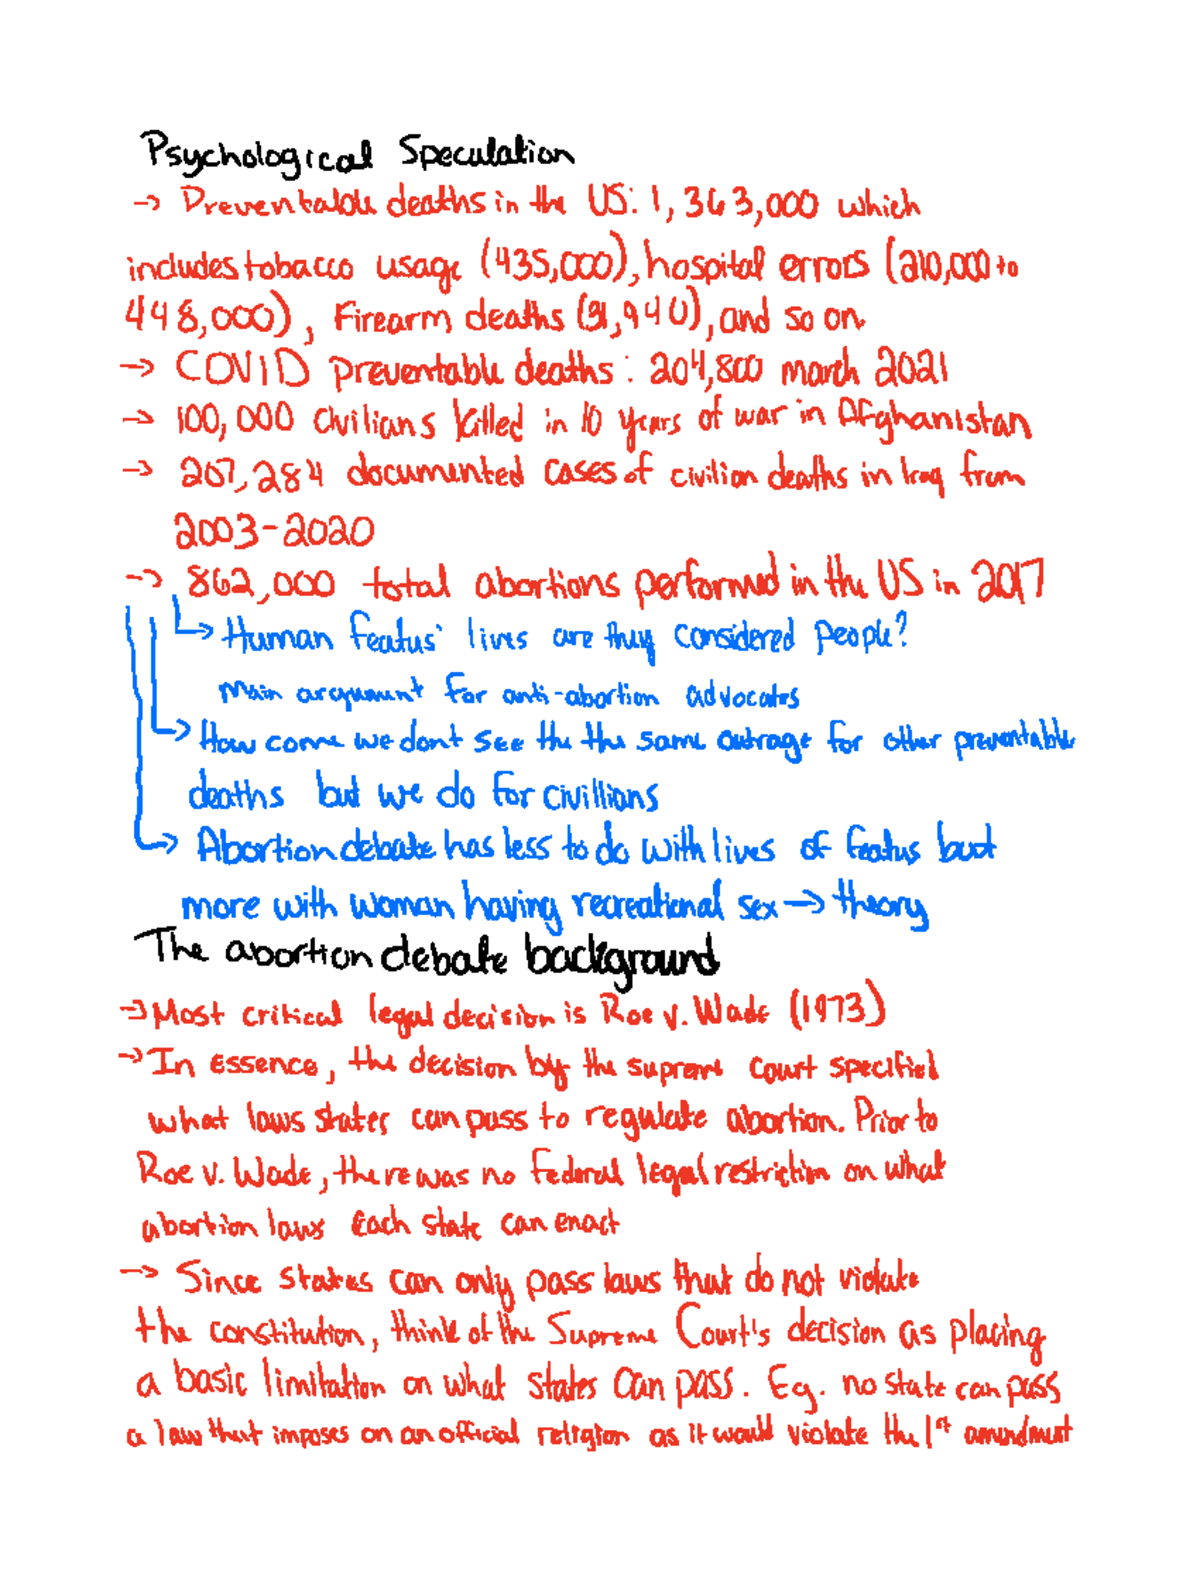 Psychological Speculation
→ Preventable deaths in the US: 1,363,000 which
includes tobacco usage (435,000), hospital errors (210,000 to
448,000), Firearm deaths (31,940), and so on.
→ COVID preventable deaths: 204,800 march 2021
→ 100,000 civilians killed in 10 years of war in Afghanistan
→ 207,284 documented cases of civilian deaths in Iraq from
2003-2020
→ 862,000 total abortions performed in the US in 2017
→ Human featus' lives are they considered people?
main argument for anti-abortion advocates
→ How come we dont see the the same outrage for other preventable
deaths but we do for civillians
→ Abortion debate has less to do with lives of featus but
more with woman having recreational sex → theory
The abortion debate background
→ Most critical legal decision is Roe v. Wade (1973)
→ In essence, the decision by the supreme court specified
what laws states can pass to regulate abortion. Prior to
Roe v. Wade, there was no federal legal restriction on what
abortion laws each state can enact
→ Since states can only pass laws that do not violate
the constitution, think of the Supreme Court's decision as placing
a basic limitation on what states can pass. Eg. no state can pass
a law that imposes on an official religion as it would violate the 1st amendment